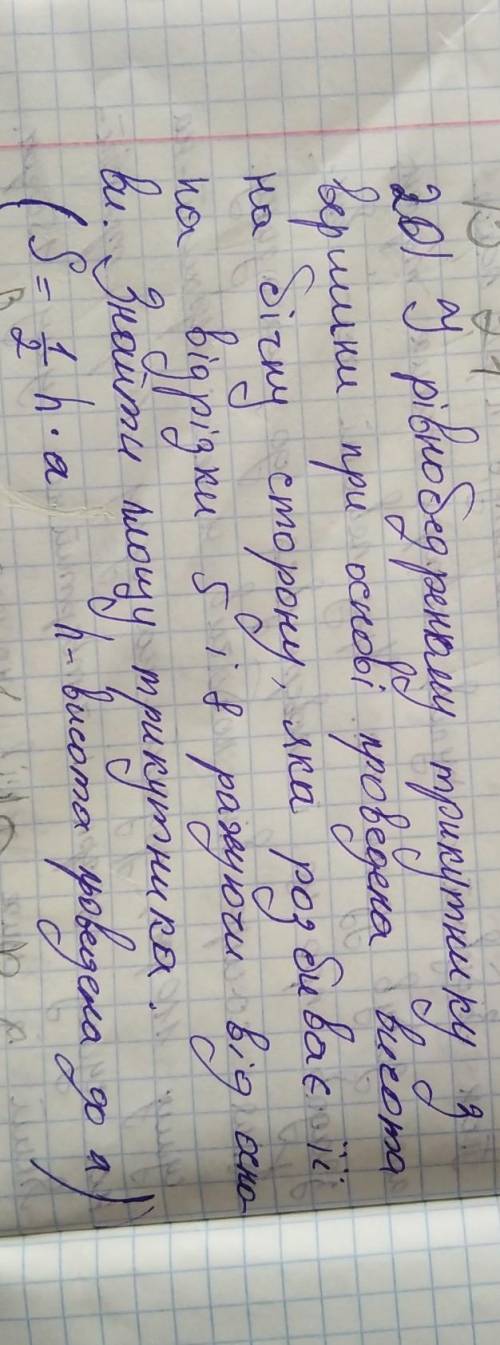 20) У рівнобедренному трикутнику з
вершини при основі проведена висота
на бічну сторону, яка розбиває її
на відрізки 5 і 8 рахуючи від осно-
ви. Знайти площу трикутника.
(S = 1/2 h · a h - висота проведена до a)